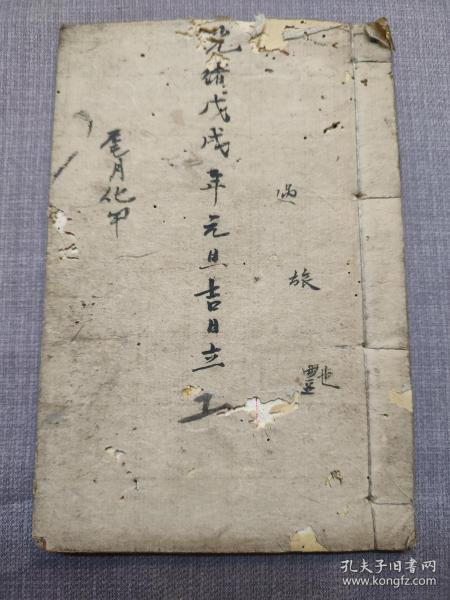 過旅
光緒戊戌年元旦吉日立
花甲
孔夫子旧书网
www.kongfz.com